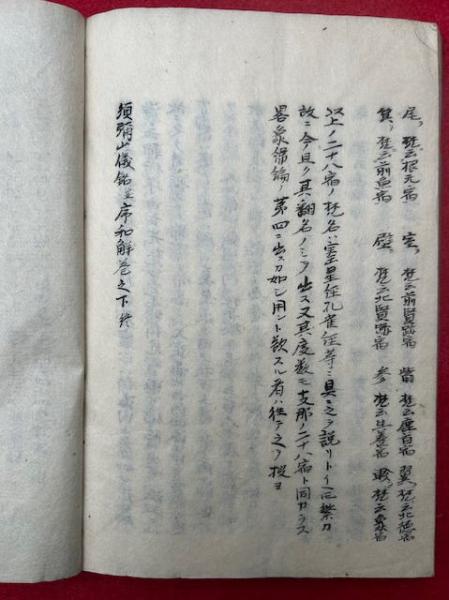 尾、梵云根元宿 室、梵云前賢跡宿 觜、梵云鹿首宿 翼、梵云北徳宿
箕、梵云前魚宿 壁、梵云北賢跡宿 参、梵云生養宿 軫、梵云象宿
以上ノ二十八宿ノ梵名ハ宝星経孔雀経等ニ具ニ之ヲ説リトイヘ𪜈繁カ
故ニ今且ク其翻名ノミヲ出ス又其度数モ支那ノ二十八宿ト同カラス
畧象編ノ第四ニ出スカ如シ用ント欲スル者ハ往テ之ヲ按ヨ
須彌山儀銘並序和解巻之下終